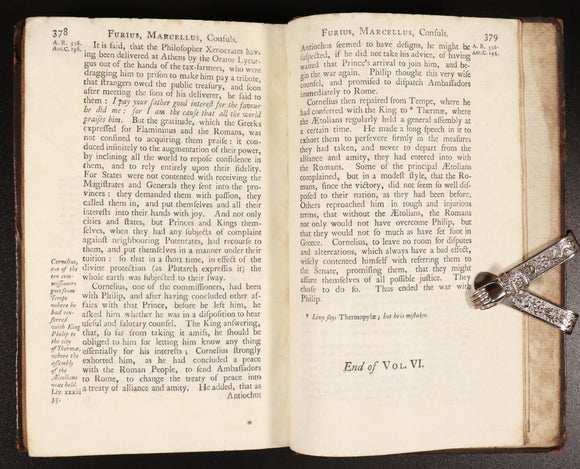 378 FURIUS, MARCELLUS, Conſuls.
A. R. 556.
Ant.C. 196.
It is ſaid, that the Philoſopher Xenocrates hav-
ing been delivered at Athens by the Orator Lycur-
gus out of the hands of the tax-farmers, who were
dragging him to priſon to make him pay a tribute,
that ſtrangers owed the public treaſury, and ſoon
after meeting the ſons of his deliverer, he ſaid to
them : I pay your father good intereſt for the favour
he did me : for I am the cauſe that all the world
praiſes him. But the gratitude, which the Greeks
expreſſed for Flamininus and the Romans, was
not confined to acquiring them praiſe : it con-
duced infinitely to the augmentation of their power,
by inclining all the world to repoſe confidence in
them, and to rely entirely upon their fidelity.
For States were not contented with receiving the
Magiſtrates and Generals they ſent into the pro-
vinces : they demanded them with paſſion, they
called them in, and put themſelves and all their
intereſts into their hands with joy. And not only
cities and ſtates, but Princes and Kings them-
ſelves, when they had any ſubjects of complaint
againſt neighbouring Potentates, had recourſe to
them, and put themſelves in a manner under their
tuition : ſo that in a ſhort time, in effect of the
Divine protection (as Plutarch expreſſes it) the
whole earth was ſubjected to their ſway.
Cornelius,
one of the
ten com-
miſſioners
goes from
Tempe
where he
had con-
ferred
with King
Philip to
the city
of Thermæ,
where the
aſſembly
of the
Ætolians
was held.
Liv. xxxiii
35.
Cornelius, one of the commiſſioners, had been
with Philip, and after having concluded other af-
fairs with that Prince, before he left him, he
aſked him whether he was in a diſpoſition to hear
uſeful and ſalutary counſel. The King anſwering,
that, ſo far from taking it amiſs, he ſhould be
obliged to him for letting him know any thing
eſſentially for his intereſts ; Cornelius ſtrongly
exhorted him, as he had concluded a peace
with the Roman People, to ſend Ambaſſadors
to Rome, to change the treaty of peace into
a treaty of alliance and amity. He added, that as
Antiochus
FURIUS, MARCELLUS, Conſuls. 379
A. R. 556.
Ant.C. 196.
Antiochus ſeemed to have deſigns, he might be
ſuſpected, if he did not take his advice, of having
waited that Prince's arrival to join him, and be-
gin the war again. Philip thought this very wiſe
counſel, and promiſed to diſpatch Ambaſſadors
immediately to Rome.
Cornelius then repaired from Tempe, where he
had conferred with the King to * Thermæ, where
the Ætolians regularly held a general aſſembly at
a certain time. He made a long ſpeech in it to
exhort them to perſevere firmly in the meaſures
they had taken, and never to depart from the
alliance and amity, they had entered into with
the Romans. Some of the principal Ætolians
complained, but in a modeſt ſtyle, that the Ro-
mans, ſince the victory, did not ſeem ſo well diſ-
poſed to their nation, as they had been before.
Others reproached him in rough and injurious
terms, that without the Ætolians, the Romans
not only would not have overcome Philip, but
that they would not ſo much as have ſet foot in
Greece. Cornelius, to leave no room for diſputes
and altercations, which always have a bad effect,
wiſely contented himſelf with referring them to
the Senate, promiſing them, that they might
aſſure themſelves of all poſſible juſtice. They
choſe to do ſo. Thus ended the war with
Philip.
* Livy ſays Thermopylæ ; but he is miſtaken.
End of VOL. VI.